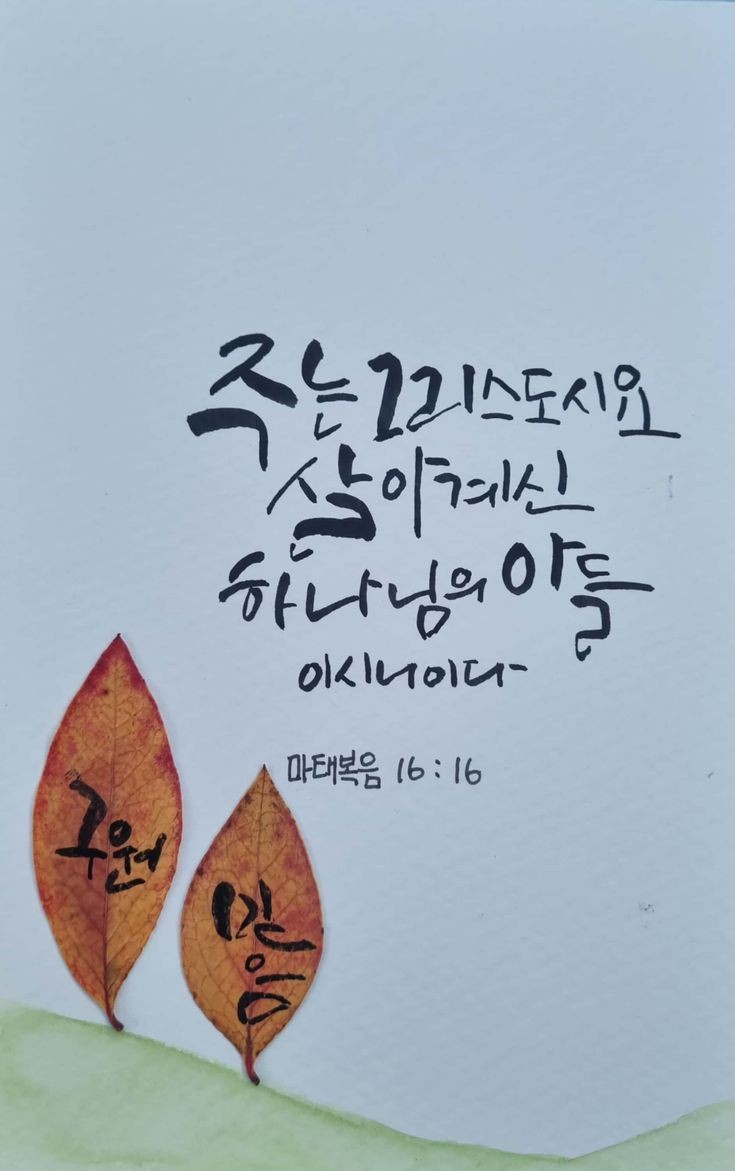 주는 그리스도시요
살아계신
하나님의 아들
이시니이다
마태복음 16:16
구원
믿음